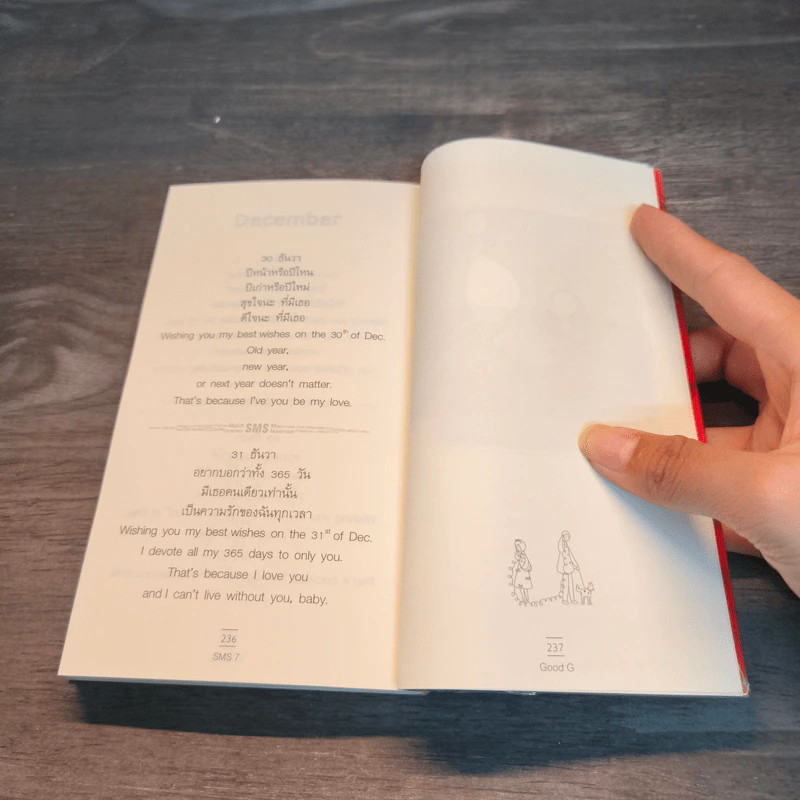 December
30 ธันวา
ปีหน้าหรือปีไหน
ปีเก่าหรือปีใหม่
สุขใจนะ ที่มีเธอ
ดีใจนะ ที่มีเธอ
Wishing you my best wishes on the 30th of Dec.
Old year,
new year,
or next year doesn't matter.
That's because I've you be my love.
SMS
31 ธันวา
อยากบอกว่าทั้ง 365 วัน
มีเธอคนเดียวเท่านั้น
เป็นความรักของฉันทุกเวลา
Wishing you my best wishes on the 31st of Dec.
I devote all my 365 days to only you.
That's because I love you
and I can't live without you, baby.
236
SMS 7
237
Good G